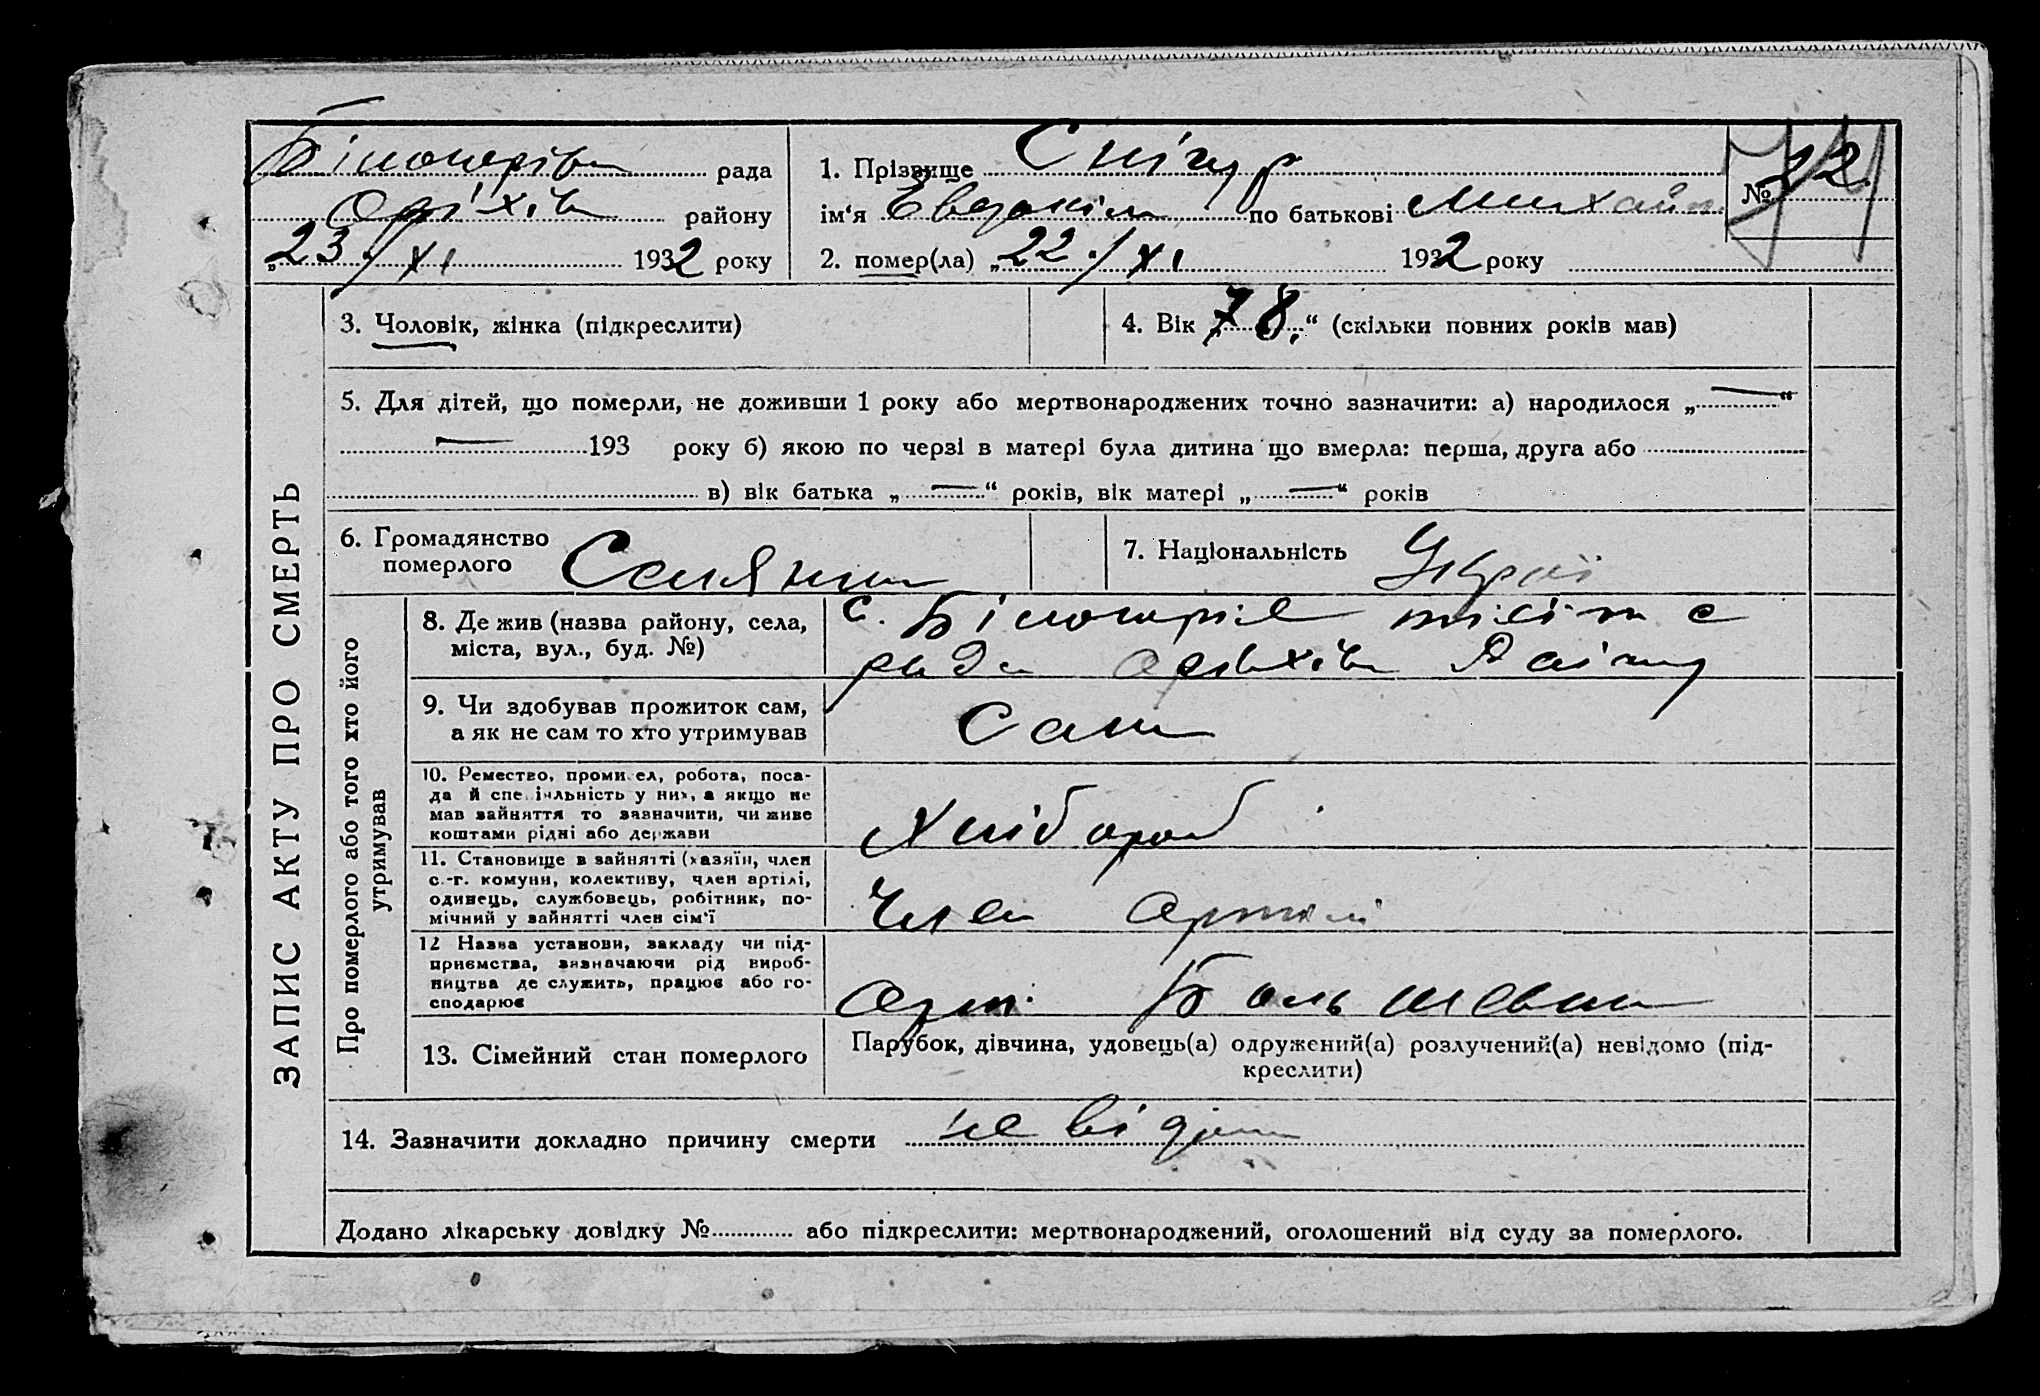 Білогорів рада
Оріхів району
„23“/XI 1932 року
1. Прізвище Снігур
ім‘я Євдокім по батькові Михайл
2. помер(ла) „22“/XI 1932 року
№ 22
ЗАПИС АКТУ ПРО СМЕРТЬ
3. Чоловік, жінка (підкреслити)
4. Вік „78.“ (скільки повних років мав)
5. Для дітей, що померли, не доживши 1 року або мертвонароджених точно зазначити: а) народилося „—“
— 193 року б) якою по черзі в матері була дитина що вмерла: перша, друга або
в) вік батька „—“ років, вік матері „—“ років
6. Громадянство
померлого Селянин
7. Національність Украї
Про померлого або того хто його
утримував
8. Де жив (назва району, села,
міста, вул., буд. №)
с. Білогоріє с
ради Оріхів Району
9. Чи здобував прожиток сам,
а як не сам то хто утримував
Сам
10. Ремество, промисел, робота, поса-
да й спеціяльність у них, а якщо не
мав зайняття то зазначити, чи живе
коштами рідні або держави
Хлібороб
11. Становище в зайнятті (хазяїн, член
с.-г. комуни, колективу, член артілі,
одинець, службовець, робітник, по-
мічний у зайнятті член сім‘ї
Член артілі
12 Назва установи, закладу чи під-
приємства, зазначаючи рід вироб-
ництва де служить, працює або го-
сподарює
Арт. Большевик
13. Сімейний стан померлого
Парубок, дівчина, удовець(а) одружений(а) розлучений(а) невідомо (під-
креслити)
14. Зазначити докладно причину смерти невідома
Додано лікарську довідку № або підкреслити: мертвонароджений, оголошений від суду за померлого.